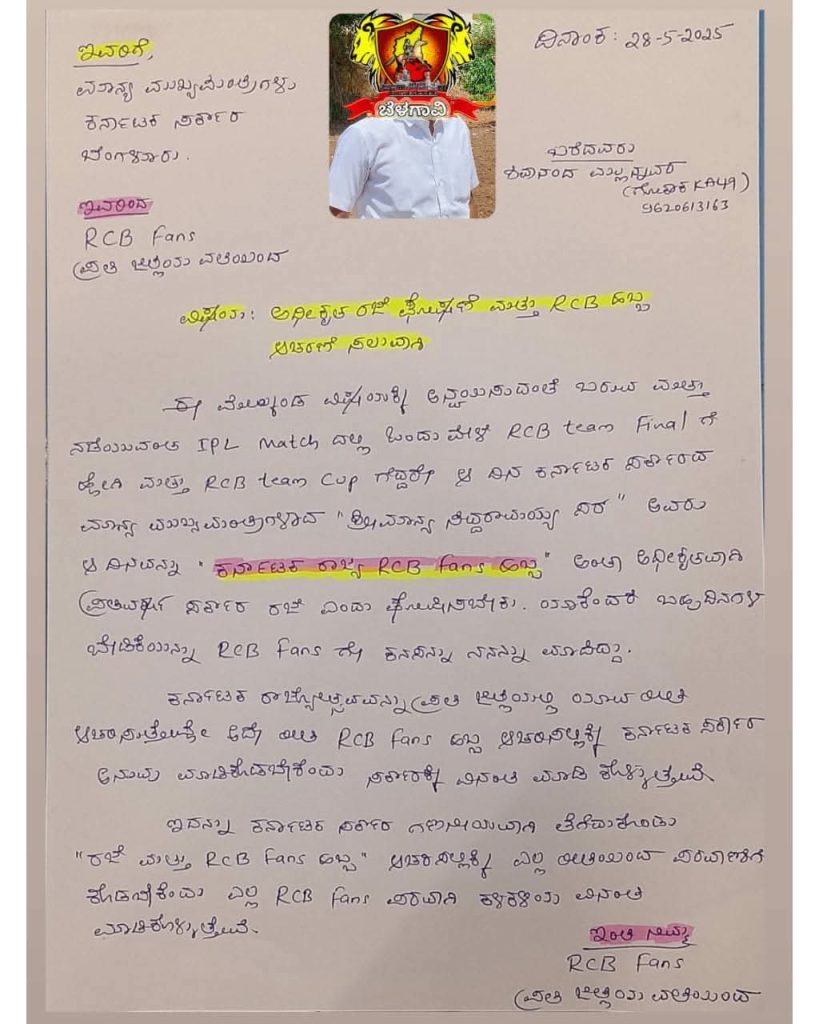 ಇವರಿಗೆ,
ಮಾನ್ಯ ಮುಖ್ಯಮಂತ್ರಿಗಳು
ಕರ್ನಾಟಕ ಸರ್ಕಾರ
ಬೆಂಗಳೂರು.
ಬೆಳಗಾವಿ
ದಿನಾಂಕ: 28-5-2025
ಬರೆದವರು
ಶಿವಾನಂದ
(ಗೋಕಾಕ KA49)
9620613163
ಇವರಿಂದ
RCB Fans
ಪ್ರತಿ ಜಿಲ್ಲೆಯ ವತಿಯಿಂದ
ವಿಷಯ: ಅಧೀಕೃತ ರಜೆ ಘೋಷಣೆ ಮತ್ತು RCB ಹಬ್ಬ
ಆಚರಣೆ ಸಲುವಾಗಿ
ಈ ಮೇಲ್ಕಂಡ ವಿಷಯಕ್ಕೆ ಅನ್ವಯಿಸುವಂತೆ ಬರುವ ಮತ್ತು
ನಡೆಯುವಂತ IPL Match ದಲ್ಲಿ ಒಂದು ವೇಳೆ RCB team Final ಗೆ
ಹೋಗಿ ಮತ್ತು RCB team Cup ಗೆದ್ದರೇ ಆ ದಿನ ಕರ್ನಾಟಕ ಸರ್ಕಾರದ
ಮಾನ್ಯ ಮುಖ್ಯಮಂತ್ರಿಗಳಾದ "ಶ್ರೀಮಾನ್ಯ ಸಿದ್ದರಾಮಯ್ಯ ಸರ" ಅವರು
ಆ ದಿನವನ್ನು "ಕರ್ನಾಟಕ ರಾಜ್ಯ RCB fans ಹಬ್ಬ" ಅಂತಾ ಅಧೀಕೃತವಾಗಿ
ಪ್ರತಿವರ್ಷ ಸರ್ಕಾರ ರಜೆ ಎಂದು ಘೋಷಿಸಬೇಕು. ಯಾಕೆಂದರೆ ಬಹುದಿನಗಳ
ಬೇಡಿಕೆಯನ್ನು RCB Fans ಗೇ ಕನಸನ್ನು ನನಸನ್ನು ಮಾಡಿದ್ದು.
ಕರ್ನಾಟಕ ರಾಜ್ಯೋತ್ಸವವನ್ನು ಪ್ರತಿ ಜಿಲ್ಲೆಯಲ್ಲಿ ಯಾವ ರೀತಿ
ಆಚರಿಸುತ್ತೇವೋ ಅದೇ ರೀತಿ RCB Fans ಹಬ್ಬ ಆಚರಿಸಲಿಕ್ಕೆ ಕರ್ನಾಟಕ ಸರ್ಕಾರ
ಅನುವು ಮಾಡಿಕೊಡಬೇಕೆಂದು ಸರ್ಕಾರಕ್ಕೆ ವಿನಂತಿ ಮಾಡಿ ಕೊಳ್ಳುತ್ತೇವೆ.
ಇದನ್ನು ಕರ್ನಾಟಕ ಸರ್ಕಾರ ಗಣನೀಯವಾಗಿ ತೆಗೆದುಕೊಂಡು
"ರಜೆ ಮತ್ತು RCB Fans ಹಬ್ಬ" ಆಚರಿಸಲಿಕ್ಕೆ ಎಲ್ಲ ರೀತಿಯಿಂದ ಪರವಾಣಿಗೆ
ಕೊಡಬೇಕೆಂದು ಎಲ್ಲ RCB Fans ಪರವಾಗಿ ಕಳಕಳಿಯ ವಿನಂತಿ
ಮಾಡಿಕೊಳ್ಳುತ್ತೇವೆ.
ಇಂತಿ ನಿಮ್ಮ
RCB Fans
ಪ್ರತಿ ಜಿಲ್ಲೆಯ ವತಿಯಿಂದ